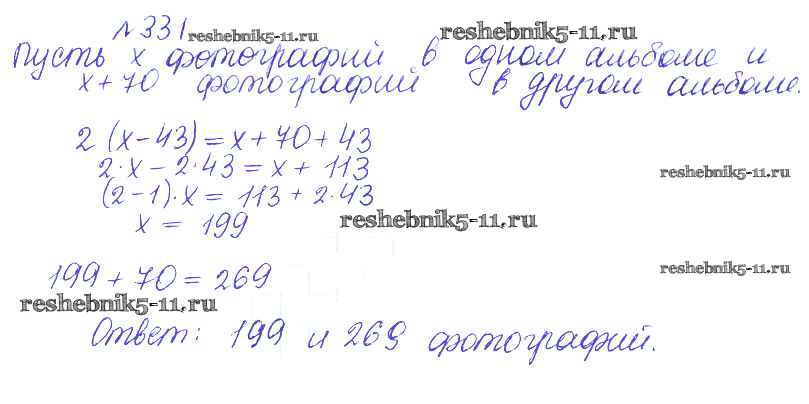 №331 reshebnik5-11.ru reshebnik5-11.ru
Пусть x фотографий в одном альбоме и
x+70 фотографий в другом альбоме.
2(x-43)=x+70+43
2·x-2·43=x+113
reshebnik5-11.ru
(2-1)·x=113+2·43
x=199 reshebnik5-11.ru
199+70=269 reshebnik5-11.ru
reshebnik5-11.ru
Ответ: 199 и 269 фотографий.